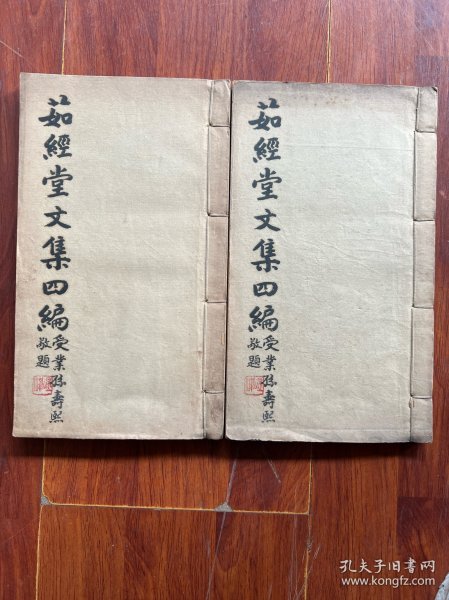 茹經堂文集四編
受業孫壽熙
敬題
茹經堂文集四編
受業孫壽熙
敬題
孔夫子旧书网
www.kongfz.com